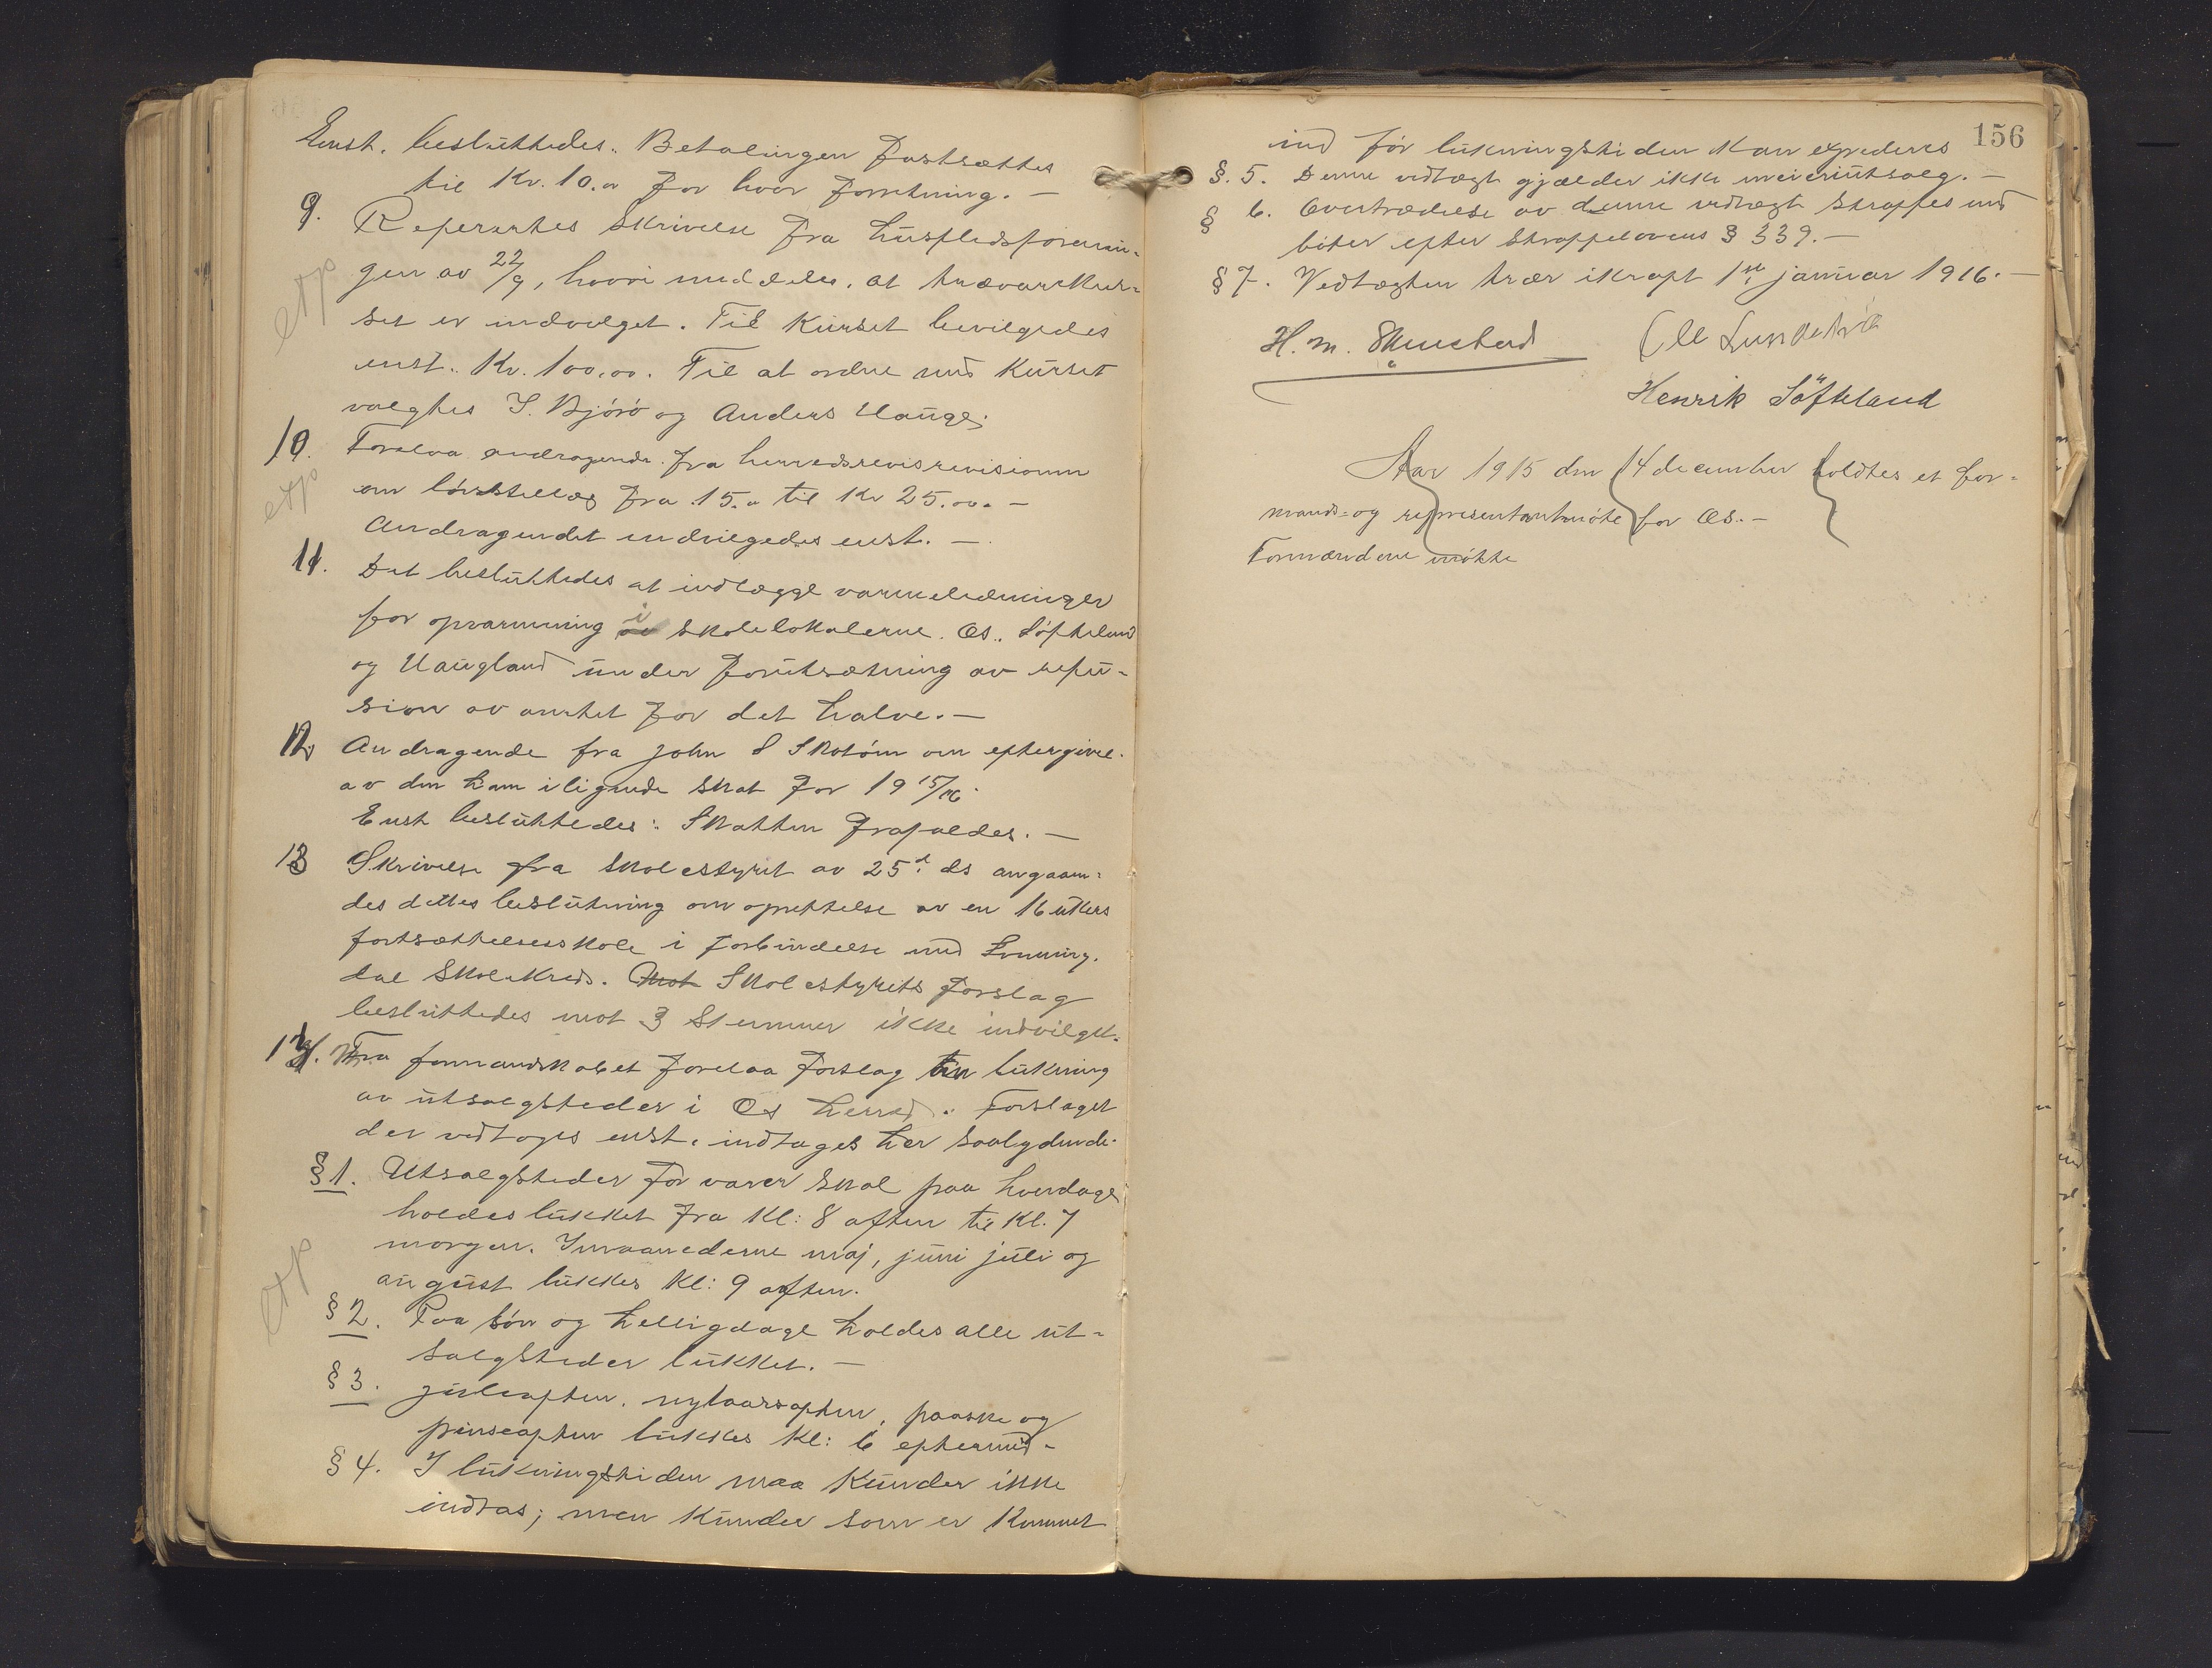 Enst. besluttedes: Betalingen fastsættes
til Kr. 10.00 for hver forretning. —
9. Refererhes Skrivelse fra husflidsforenin-
gen av 22/9, hvori meddeles, at trævarekur-
set er indvilget. Til Kurset bevilgedes
enst. Kr. 100,00. Til at ordne med Kurset
valghes I. Bjórö og Anders Hauge.
etp
10. Forelaa andragende fra herredsrevisrevisionen
om lønstillæg fra 15.00 til Kr 25.00. —
Andragendet indvilgedes enst. —
etp
11. Det besluttedes at indlægge varmeledninger
for oparmning i Skolelokalerne Os, Söfteland
og Haugland under forutsætning av refu-
sion av amtet for det halve. —
12. Andragende fra John S Skotóm om eftergivel.
av den ham iligende Skat for 1915/16.
Enst besluttedes: Skatten frafaldes. —
13 Skrivelse fra Skolestyret av 25d ds angaaen-
des dettes beslutning om oprettelse av en 16 ukers
fortsættelsesskole i forbindelse med Lønning-
dal Skolekreds. Skolestyrets forslag
besluttedes mot 3 Stemmer ikke indvilget.
14. Fra formandskabet forelaa forslag til lukning
av utsalgsteder i Os herred. Forslaget
der vedtoges enst. indtages her saalydende.
§ 1. Utsalgsteder for varer skal paa hverdage
holdes lukket fra Kl: 8 aften til Kl. 7
morgen. I maanederne maj, juni juli og
august lukkes Kl: 9 aften.
etp
§ 2. Paa søn og helligdage holdes alle ut-
salgsteder lukket. —
§ 3. Juleaften, nytaarsaften, paaske og
pinseaften lukkes Kl: 6 eftermid-
§ 4. I lukningstiden maa Kunder ikke
indtas; men Kunder som er Kommet
156
ind før lukningstiden Kan expederes
§. 5. Denne vedtægt gjælder ikke meieriutsalg. —
§ 6. Overtrædelse av denne vedtægt straffes med
böter efter Straffelovens § 339. —
§ 7. Vedtægten trær ikraft 1ste januar 1916. —
H. M. Skuestad
Henrik Söfteland
Aar 1915 den 14 december holdtes et for-
mands- og representantmöte for Os. —
Formændene møtte